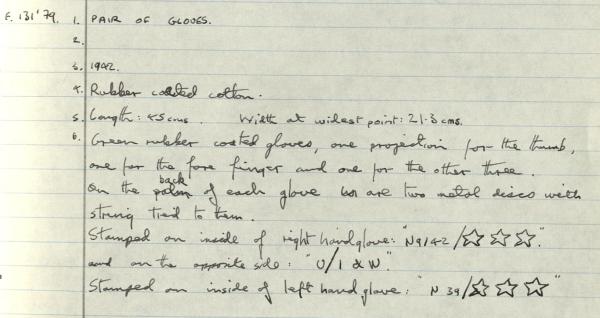 F. 131'79. 1. PAIR OF GLOVES.
2.
3. 1942.
4. Rubber coated cotton.
5. Length: 45 cms. Width at widest point: 21.3 cms.
6. Green rubber coated gloves, one projection for the thumb,
one for the fore finger and one for the other three.
On the back of each glove are two metal discs with
string tied to them.
Stamped on inside of right hand glove: "N9/42/☆☆☆."
and on the opposite side: "U/1 & W."
Stamped on inside of left hand glove: "N 39/☆☆☆"